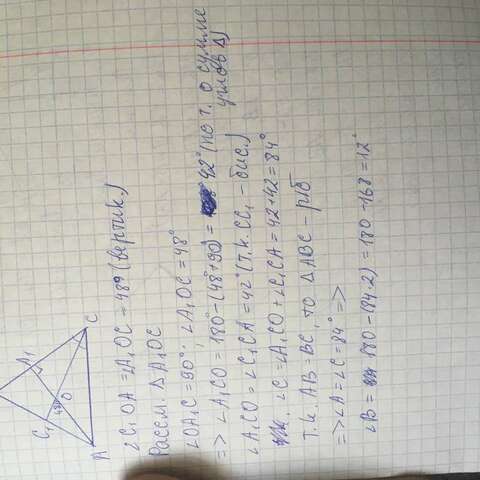 C₁
A₁
48°
O
A
C
∠C₁OA = ∠A₁OC = 48° (вертик.)
Рассм. △A₁OC
∠OA₁C = 90°; ∠A₁OC = 48°
=> ∠A₁CO = 180° - (48° + 90) = 42° (по т. о сумме
углов △)
∠A₁CO = ∠C₁CA = 42° (т.к. CC₁ - бис.)
∠C = ∠A₁CO + ∠C₁CA = 42 + 42 = 84°
Т.к. AB = BC, то △ABC - р/б
=> ∠A = ∠C = 84° =>
∠B = 180 - (84·2) = 180 - 168 = 12°